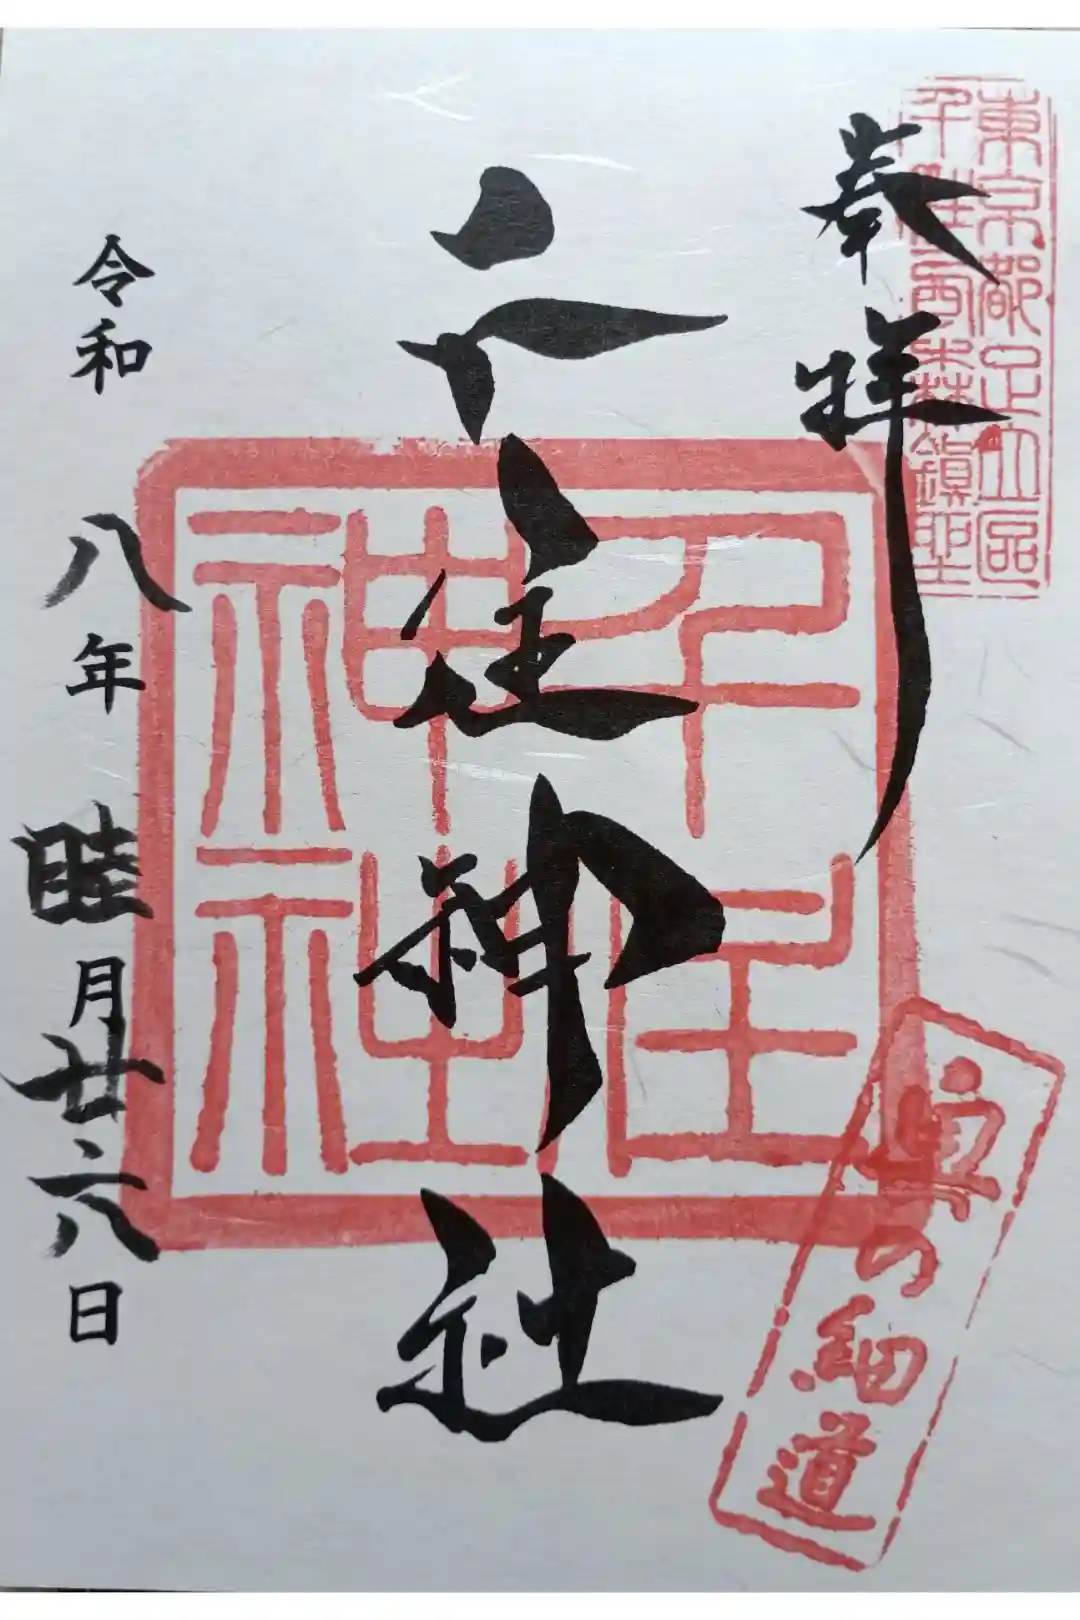 東京都足立區
千住西之森鎮
奉拝
千住神社
千住
神社
奥の細道
令和八年睦月廿六日